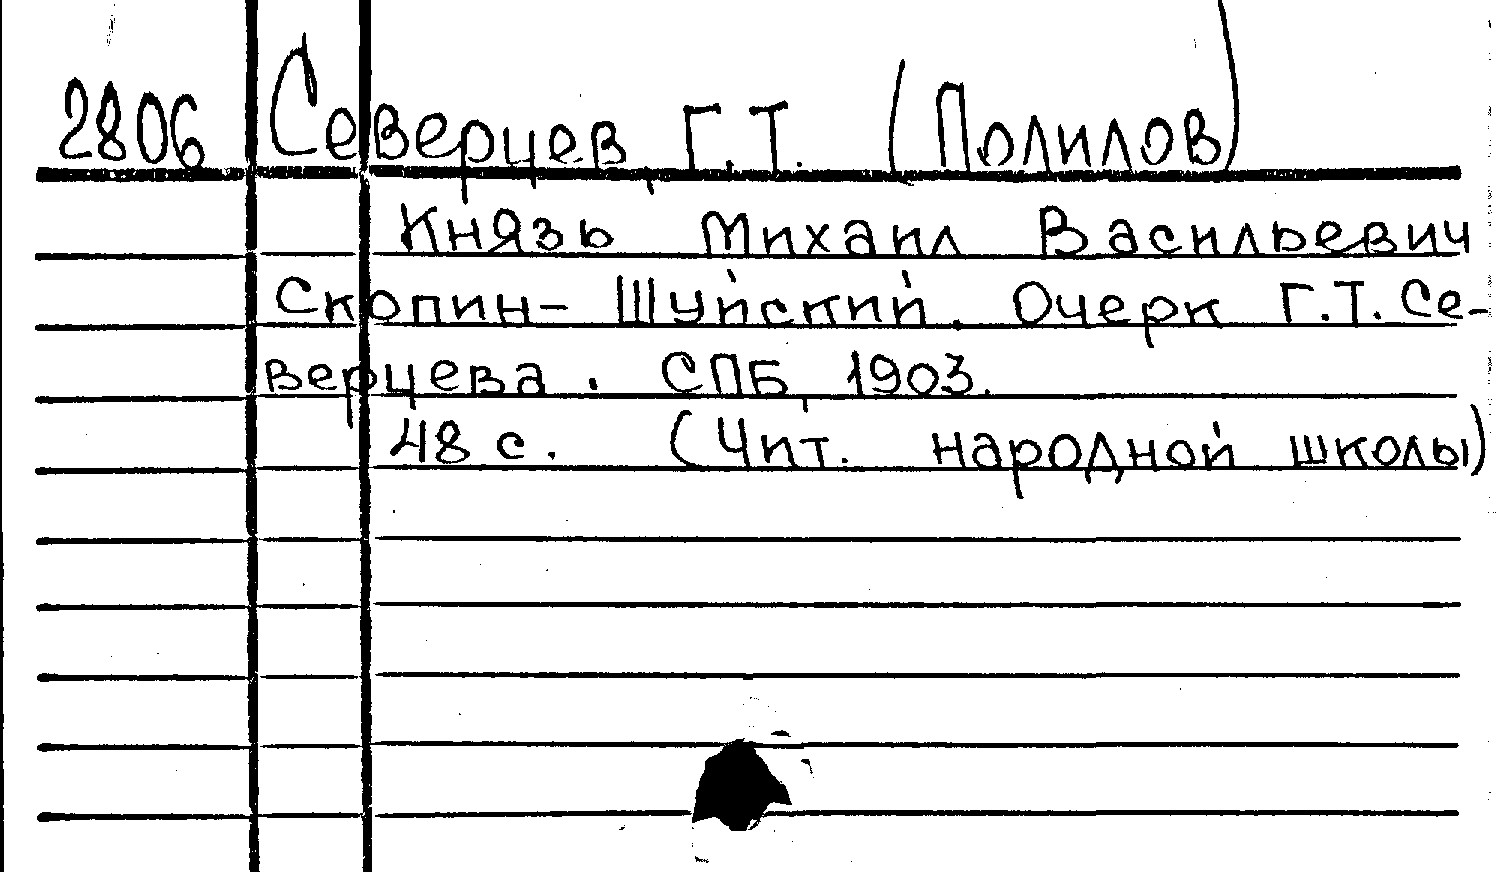 2806 Северцев, Г.Т. (Полилов)
Князь Михаил Васильевич
Скопин-Шуйский. Очерк Г.Т. Се-
верцева. СПБ, 1903.
48 с. (Чит. народной школы)